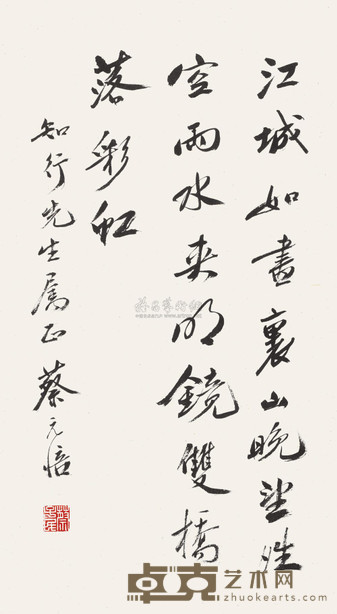 江城如畫裏山晚望晴
空兩水夾明鏡雙橋
落彩虹
知行先生属正 蔡元培
卓克艺术网
zhuokearts.com